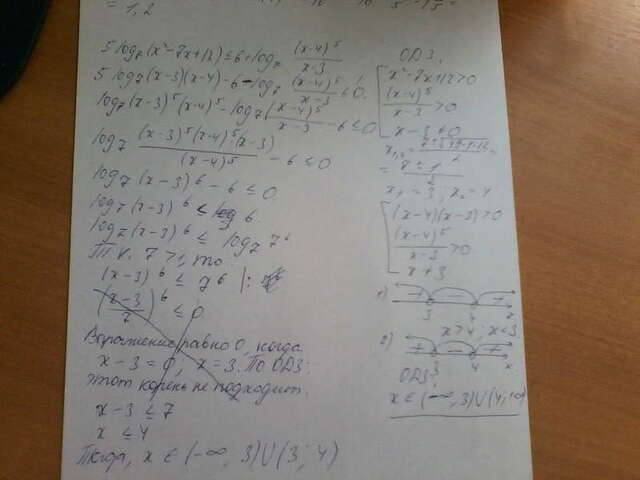 = 1,2
5 log₇(x²-7x+12) ≤ 6+log₇ (x-4)⁵/(x-3)
5 log₇(x-3)(x-4) - 6 - log₇ (x-4)⁵/(x-3) ≤ 0
log₇(x-3)⁵(x-4)⁵ - log₇ (x-4)⁵/(x-3) - 6 ≤ 0
log₇ (x-3)⁵(x-4)⁵(x-3)/(x-4)⁵ - 6 ≤ 0
log₇(x-3)⁶ - 6 ≤ 0
log₇(x-3)⁶ ≤ 6
log₇(x-3)⁶ ≤ log₇7⁶
Т.к. 7 > 1, то
(x-3)⁶ ≤ 7⁶ | :
((x-3)/7)⁶ ≤ 0
Выражение равно 0, когда
x-3=0, x=3. По ОДЗ:
этот корень не подходит.
x-3 ≤ 7
x ≤ 4
Тогда, x ∈ (-∞, 3)∪(3; 4)
ОДЗ:
x²-7x+12>0
(x-4)⁵/(x-3) >0
x-3 ≠ 0
x₁,₂ =
= (7±1)/2
x₁=3; x₂=4
(x-4)(x-3)>0
(x-4)⁵/(x-3) >0
x≠3
1) + - + 3 4 x
x>4; x<3.
2) + - + 3 4 x
ОДЗ:
x∈(-∞,3)∪(4;+∞)